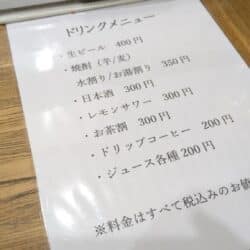 ドリンクメニュー
・生ビール 400円
・焼酎（芋/麦）
水割り/お湯割り 350円
・日本酒 300円
・レモンサワー 300円
・お茶割 300円
・ドリップコーヒー 200円
・ジュース各種 200円
※料金はすべて税込みのお値